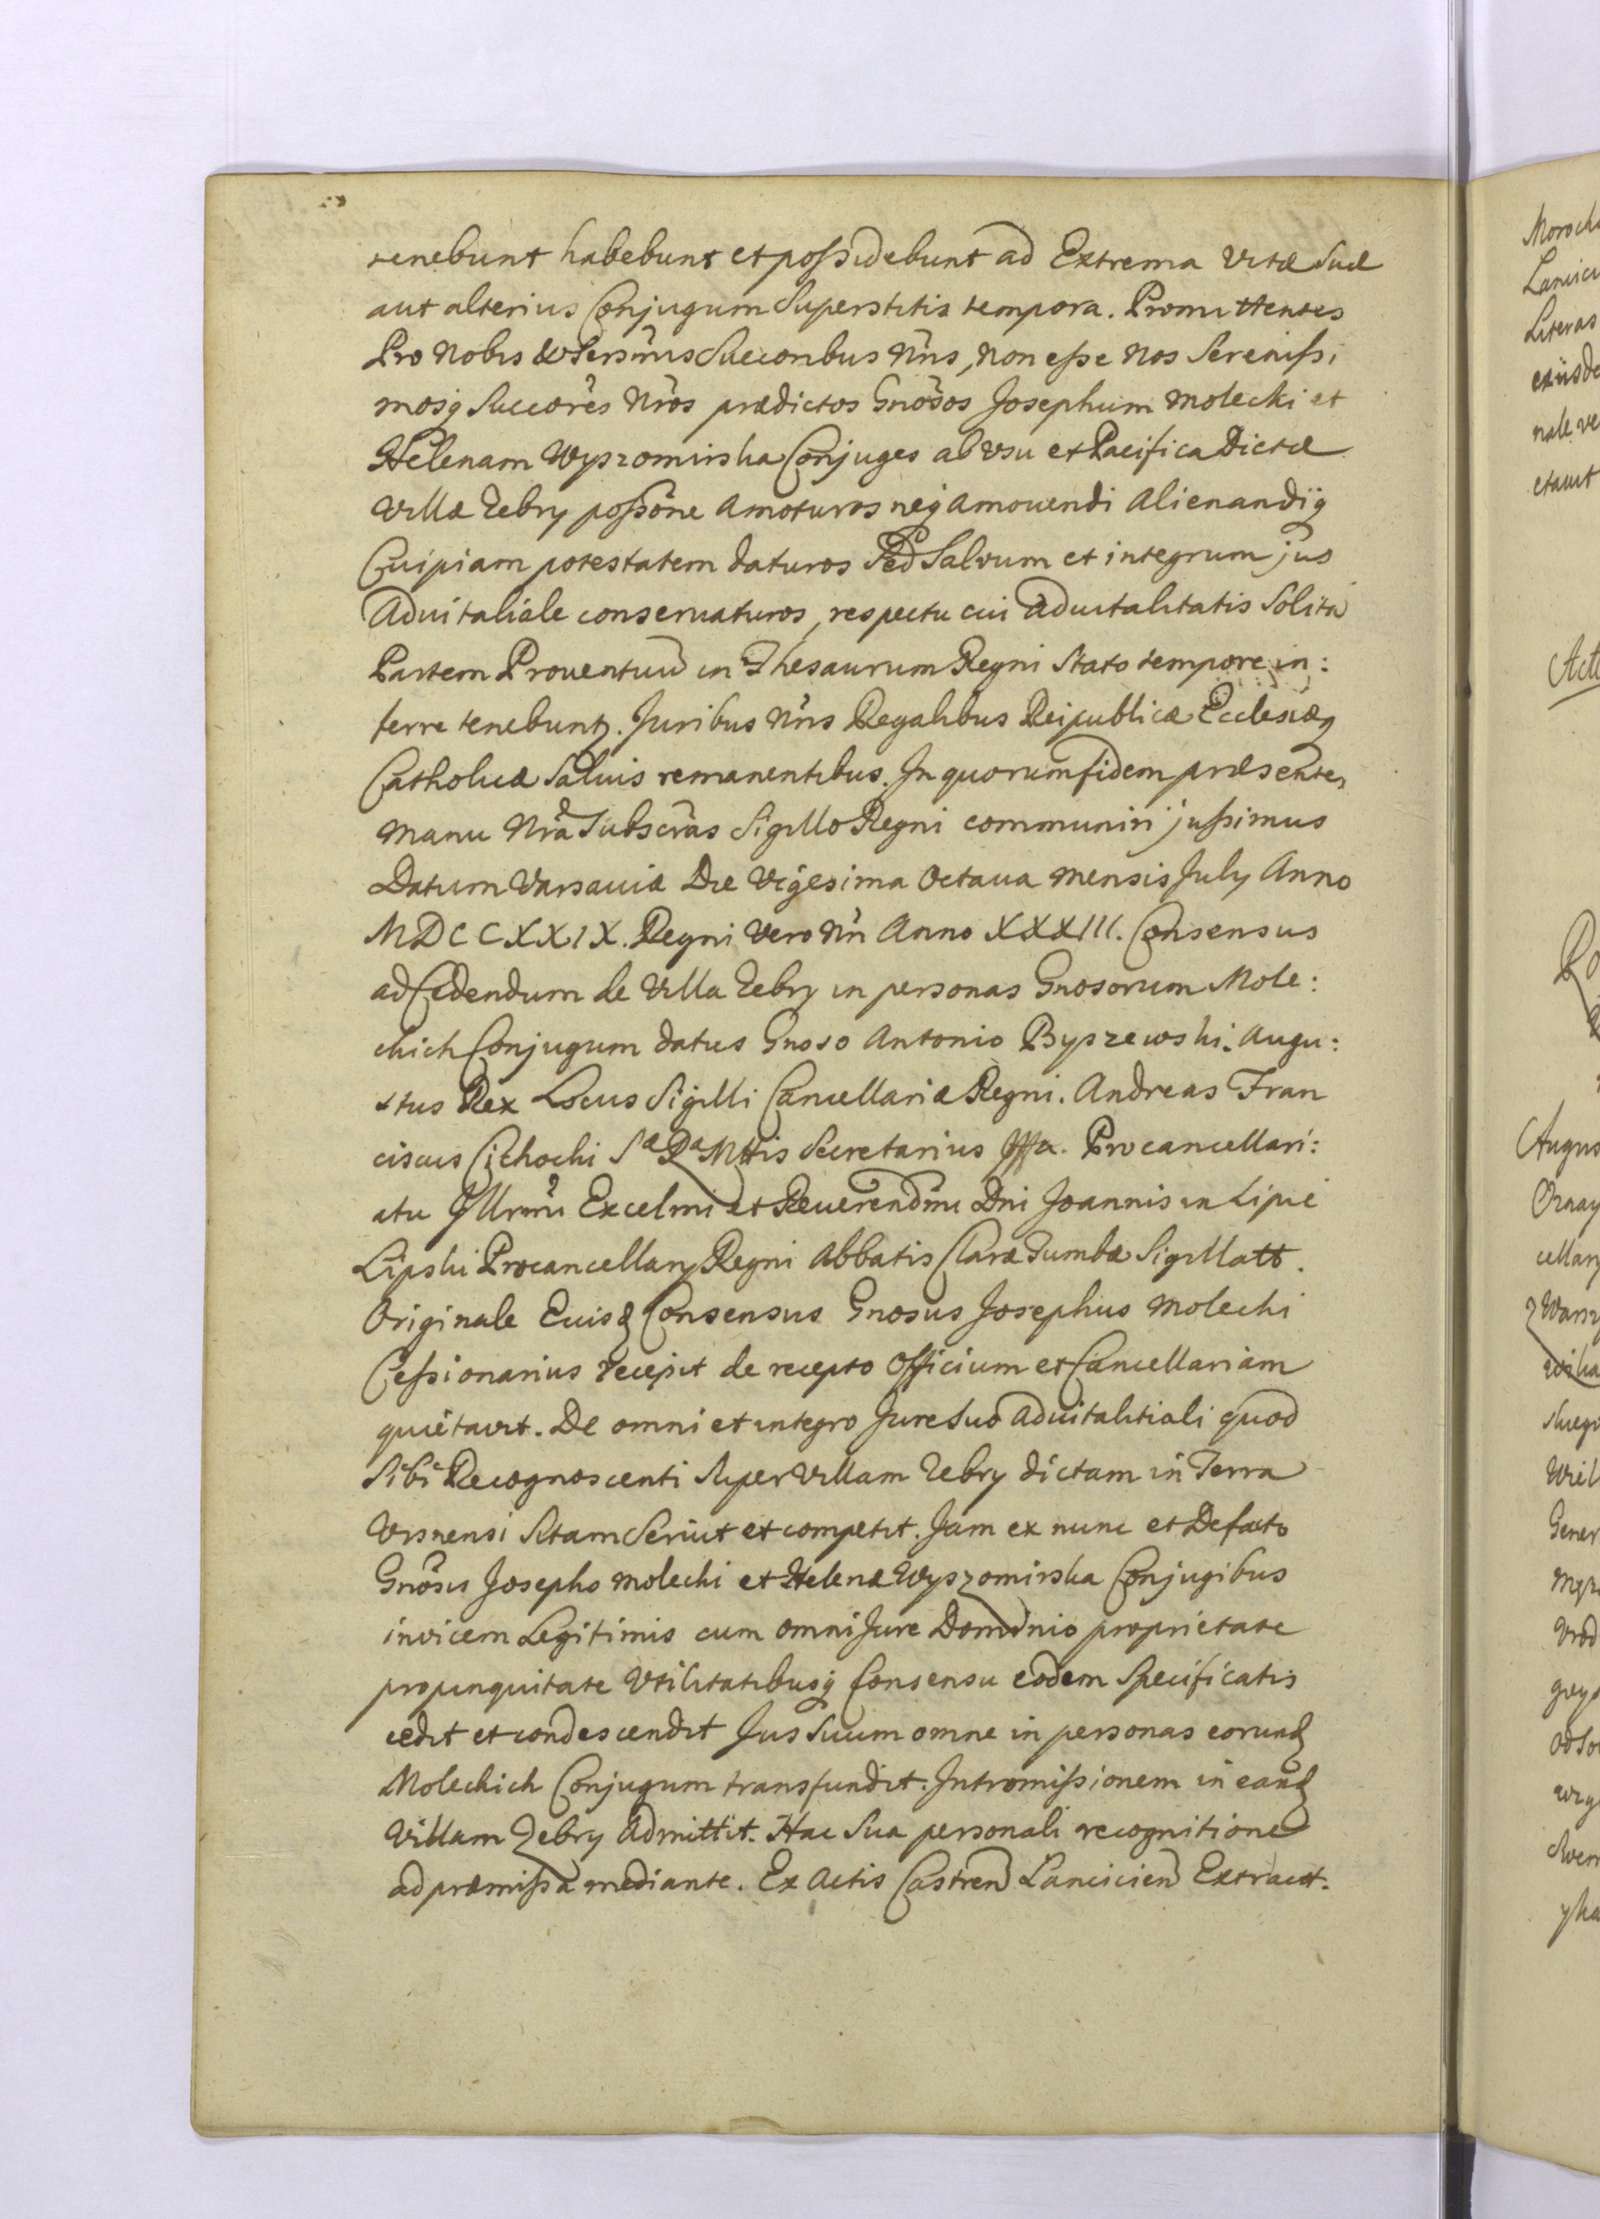 tenebunt habebunt et possidebunt ad Extrema vitæ Suæ
aut alterius Conjugum Superstitis tempora. Promittentes
Pro Nobis & Sersmis Succoribus Nris, Non esse Nos Serenissi
mosq Succores Nros prædictos Gnosos Josephum Molecki et
Helenam Wyszomirska Conjuges ab Usu et Pacifica Dictæ
Villæ Zebry possone Amoturos neq Amovendi Alienandiq
Cuipiam potestatem daturos Sed Salvum et integrum jus
Advitaliale conservaturos, respectu cui Advitalitatis Solita
Partem Proventuu in Thesaurum Regni Stato tempore in:
ferre tenebunt. Juribus Nris Regalibus Reipublicæ Ecclesiæq
Catholicæ Salvis remanentibus. In quorum fidem præsentes
Manu Nra Subscras Sigillo Regni communiri jussimus
Datum Varsaviæ Die Vigesima Octava Mensis July Anno
MDCCXXIX. Regni Vero Nri Anno XXXIII. Consensus
ad Cedendum de Villa Zebry in personas Gnosorum Mole:
ckich Conjugum datus Gnoso Antonio Byszewski. Augu:
stus Rex Locus Sigilli Cancellariæ Regni. Andreas Fran
ciscus Cichocki Sæ Ræ Mttis Secretarius Procancellari:
atu Illrmi Excelmi et Reverendmi Dni Joannis in Lipie
Lipski Procancellary Regni Abbatis Claræ Tumbæ Sigillatt.
Originale Ejusd Consensus Gnosus Josephus Molecki
Cessionarius recepit de recepto Officium et Cancellariam
quietavit. De omni et integro Jure Suo Advitalitiali quod
Sibi Recognoscenti Super Villam Zebry dictam in Terra
Visnensi Sitam Servit et competit. Jam ex nunc et Defacto
Gnosis Josepho Molecki et Helenæ Wyszomirska Conjugibus
invicem Legitimis cum omni Jure Dominio proprietate
propinquitate Utilitatibusq Consensu eodem Specificatis
cedit et condescendit Jus Suum omne in personas eorund
Moleckich Conjugum transfundit. Intromissionem in eand
Villam Zebry Admittit. Hac Sua personali recognitione
ad præmissa mediante. Ex Actis Castren Lancicien Extract.